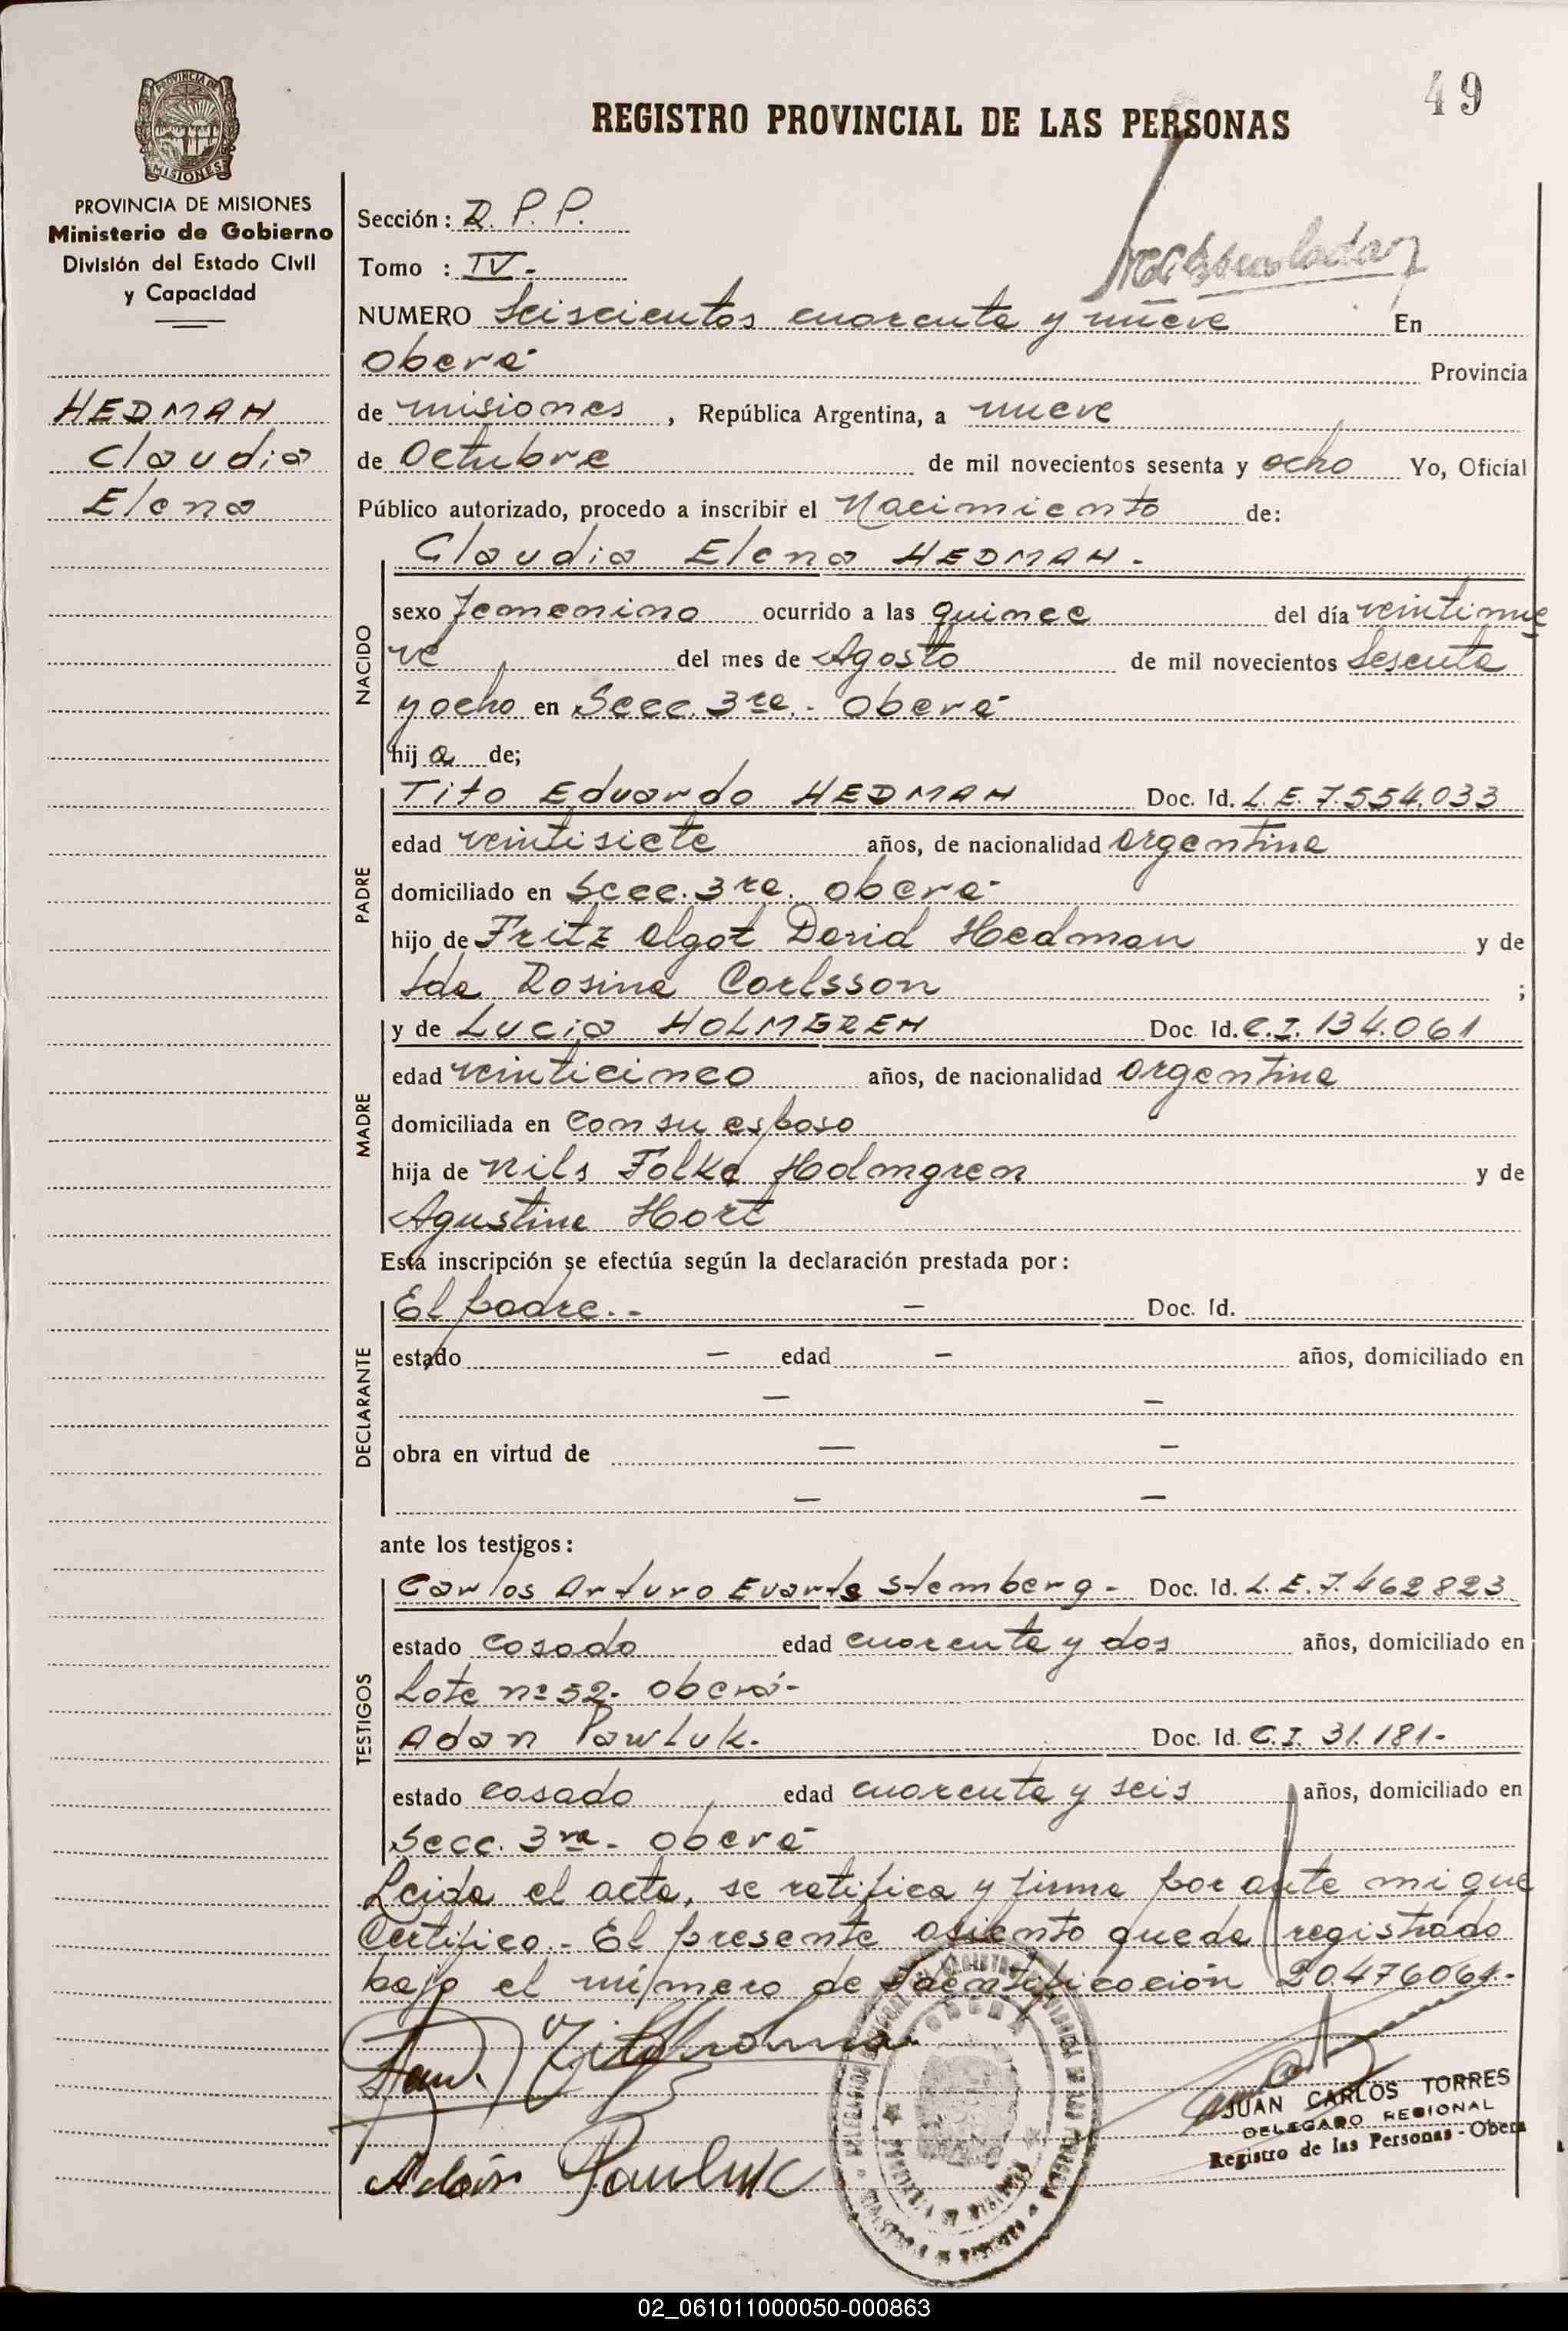 49
REGISTRO PROVINCIAL DE LAS PERSONAS
PROVINCIA DE
MISIONES
PROVINCIA DE MISIONES
Ministerio de Gobierno
División del Estado Civil
y Capacidad
HEDMAN
Claudia
Elena
Sección: D. P. P.
Tomo : IV-
NUMERO Seiscientos cuarenta y nueve En
Oberá
Provincia
de misiones, República Argentina, a nueve
de Octubre de mil novecientos sesenta y ocho Yo, Oficial
Público autorizado, procedo a inscribir el Nacimiento de:
Claudia Elena HEDMAN.
NACIDO
sexo femenino ocurrido a las quince del día veintinue
ve del mes de Agosto de mil novecientos sesenta
y ocho en Secc. 3ra.- Oberá
hija de;
PADRE
Tito Eduardo HEDMAN Doc. Id. L.E. 7.554.033
edad veintisiete años, de nacionalidad argentina
domiciliado en Secc. 3ra. Oberá
hijo de Fritz Algot David Hedman y de
Ida Rosina Carlsson ;
MADRE
y de Lucia HOLMGREN Doc. Id. C.I. 134.061
edad veinticinco años, de nacionalidad argentina
domiciliada en con su esposo
hija de Nils Folke Holmgren y de
Agustina Hort
Esta inscripción se efectúa según la declaración prestada por:
DECLARANTE
El padre.- - Doc. Id.
estado - edad - años, domiciliado en
- -
obra en virtud de - -
- -
ante los testigos:
TESTIGOS
Carlos Arturo Evarts Stemberg- Doc. Id. L.E. 7.462823
estado casado edad cuarenta y dos años, domiciliado en
Lote nº 52- Oberá-
Adan Pawluk. Doc. Id. C.I. 31.181-
estado casado edad cuarenta y seis años, domiciliado en
Secc. 3ra- Oberá
Leida el acta, se ratifica y firma por ante mi que
Certifico.- El presente asiento queda registrado
bajo el número de Identificación 20.476061.-
Adán Pauluk
JUAN CARLOS TORRES
DELEGADO REGIONAL
Registro de las Personas - Oberá
02_061011000050-000863